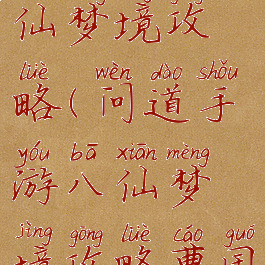 仙梦境攻
lüè wèn dào shǒu
略(问道手
yóu bā xiān mèng
游八仙梦
jìng gōng lüè cáo guó
境攻略曹国